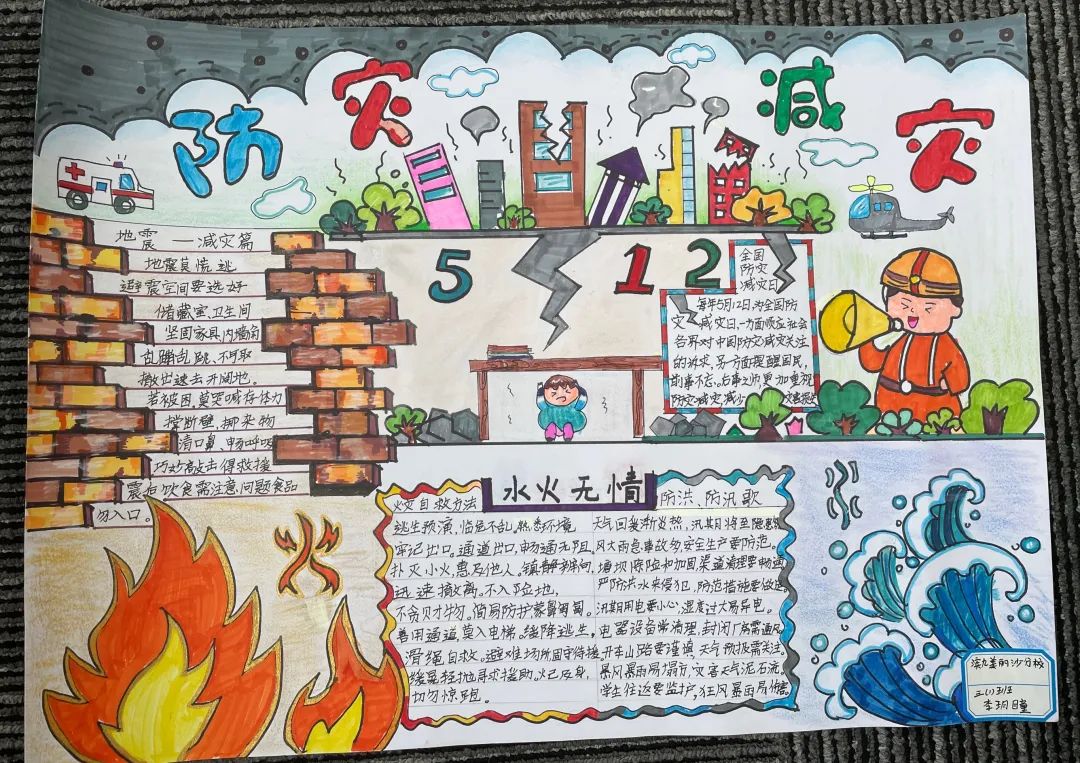 防灾减灾
地震—减灾篇
地震莫慌逃
避震空间要选好
储藏室,卫生间
坚固家具,内墙角
乱蹦乱跳,不可取
撤出速去开阔地。
若被困,莫哭喊存体力
撑断壁,挪杂物
清口鼻,畅呼吸
巧妙敲击得救援
震后饮食需注意,问题食品
勿入口。
512
全国
防灾
减灾日
每年5月12日,为全国防
灾减灾日,一方面顺应社会
各界对中国防灾减灾关注
的诉求,另方面提醒国民,
前事不忘,后事之师,更加重视
防灾减灾,减少灾害损失
水火无情
火灾自救方法
逃生预演,临危不乱。熟悉环境
牢记出口。通道出口,畅通无阻,
扑灭小火,惠及他人,镇静辨向
迅速撤离,不入险地,
不贪财物。简易防护蒙鼻匍匐。
善用通道,莫入电梯。缓降逃生,
滑绳自救。避难场所固守待援
缓晃轻抛寻求援助。火已及身,
切勿惊跑。
防洪、防汛歌
天气回暖渐炎热,汛期将至隐患多
风大雨急事故多,安全生产要防范。
塘坝除险和加固,渠道清理要畅通
严防洪水来侵犯,防范措施要做足
汛期用电要小心,湿度过大易导电。
电器设备常清理,封闭厂房需通风
开车山路要谨慎,天气预报需关注
暴风暴雨易塌方,灾害天气泥石流
学生往返要监护,狂风暴雨易伤害
火
水
三(1)班
李玥瞳